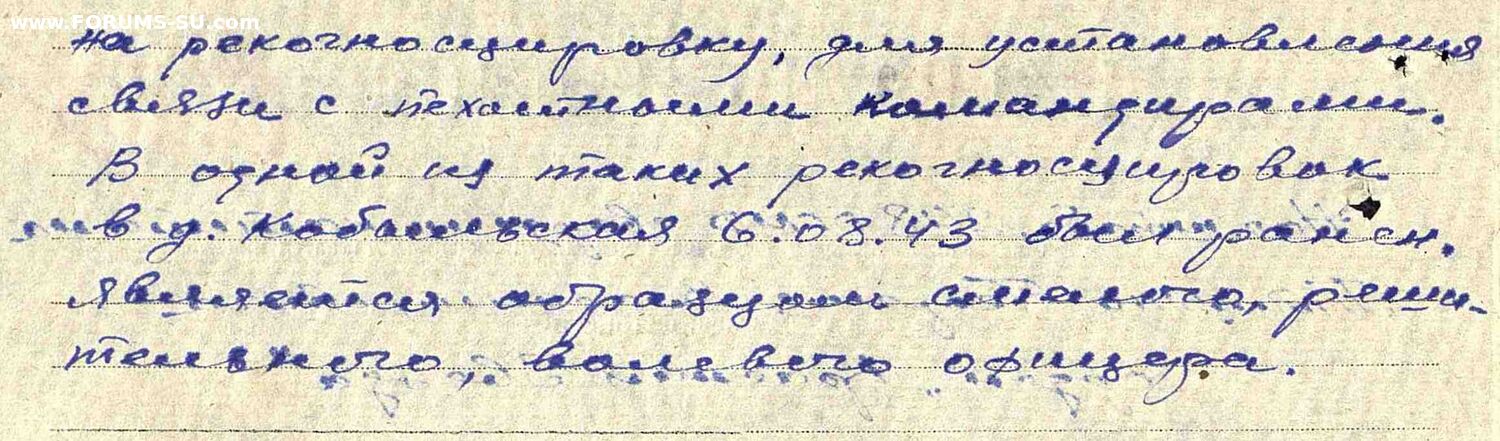 www.FORUMS-SU.com
на рекогносцировку, для установления
связи с пехотными командирами.
В одной из таких рекогносцировок
в д. 6.08.43 был ранен.
Является образцом смелого, реши-
тельного, волевого офицера.